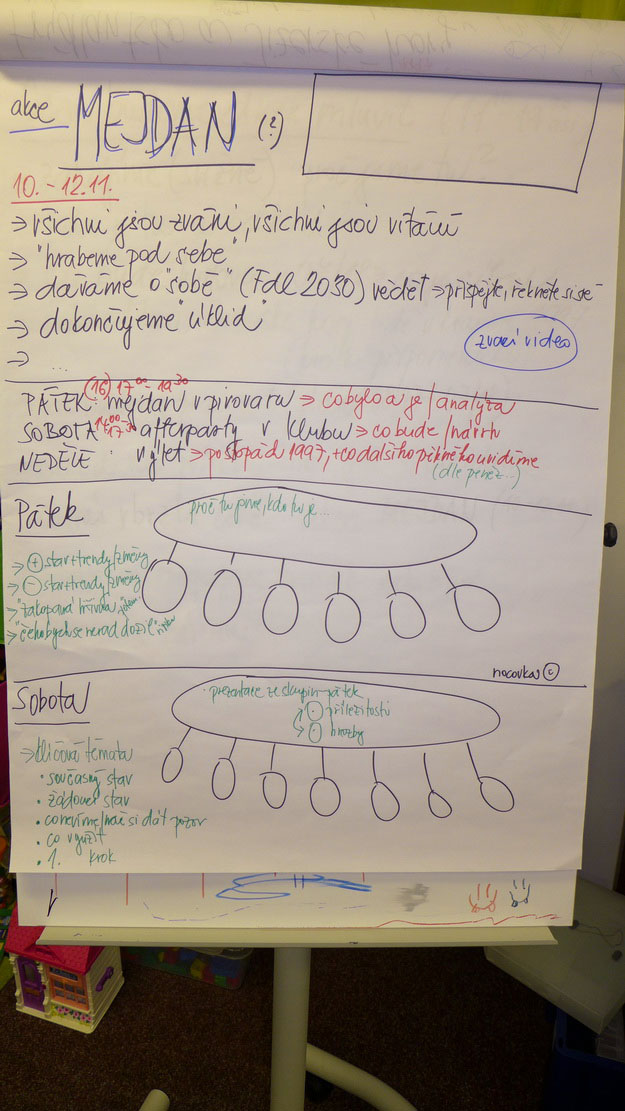 akce MEJDAN (?)
10.-12.11.
→ všichni jsou zváni, všichni jsou vítáni
→ "hrabeme pod sebe"
→ dáváme o "sobě" (Fdl 2030) vědět → přispějte, řekněte si
→ dokončujeme "úklid"
→ ...
zvací video
(16) 17⁰⁰ - 19³⁰
PÁTEK: mejdan v pivovaru → co bylo a je / analýza
SOBOTA 14⁰⁰ 17³⁰ afterparty v klubu → co bude / návrh
NEDĚLE : výlet → postopád 1997, + co dalšího pěkného uvidíme
(dle peněz...)
Pátek
proč tu jsme, kdo tu je...
→ + stav + trendy / změny
→ - stav + trendy / změny
→ "zakopaná hřivna"
→ "čeho bych se nerad dožil"
nocovka ☺
Sobota
· prezentace ze skupin - pátek
příležitosti
hrozby
→ klíčová témata
· současný stav
· žádoucí stav
· co nevíme / nač si dát pozor
· co využít
· 1. krok